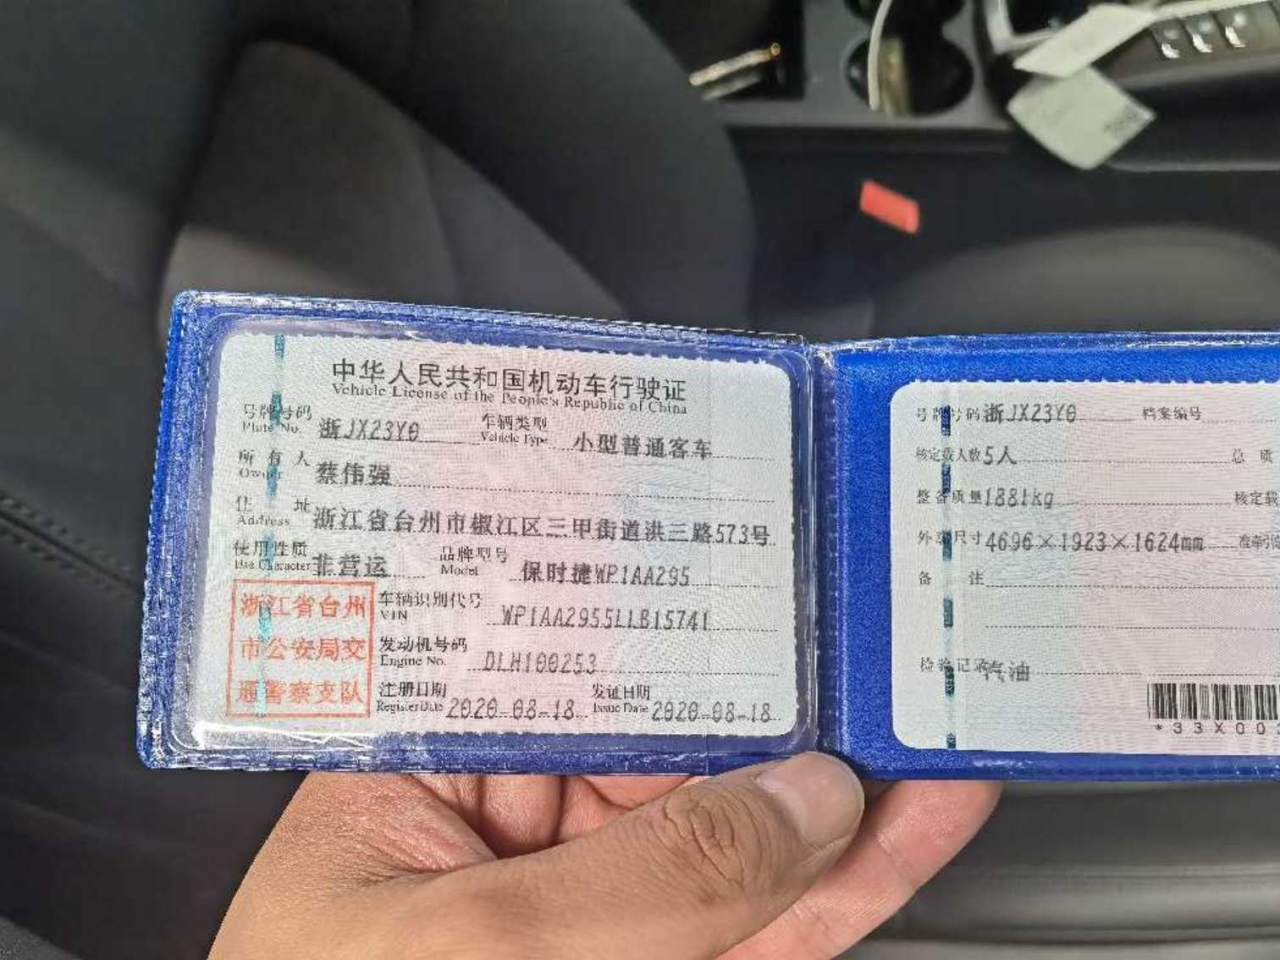 中华人民共和国机动车行驶证
Vehicle License of the People's Republic of China
号牌号码 浙JX23Y0 车辆类型 小型普通客车
Plate No. Vehicle Type
所有人 蔡伟强
Owner
住址 浙江省台州市椒江区三甲街道洪三路573号
Address
使用性质 非营运 品牌型号 保时捷WP1AA295
Use Character Model
浙江省台州
市公安局交
通警察支队
车辆识别代号 WP1AA2955LLB15741
VIN
发动机号码 DLH100253
Engine No.
注册日期 2020-08-18 发证日期 2020-08-18
Register Date Issue Date
号牌号码 浙JX23Y0 档案编号
核定载人数 5人 总质
整备质量 1881kg 核定载
外廓尺寸 4696×1923×1624mm 准牵引
备注
检验记录 汽油
*33X00